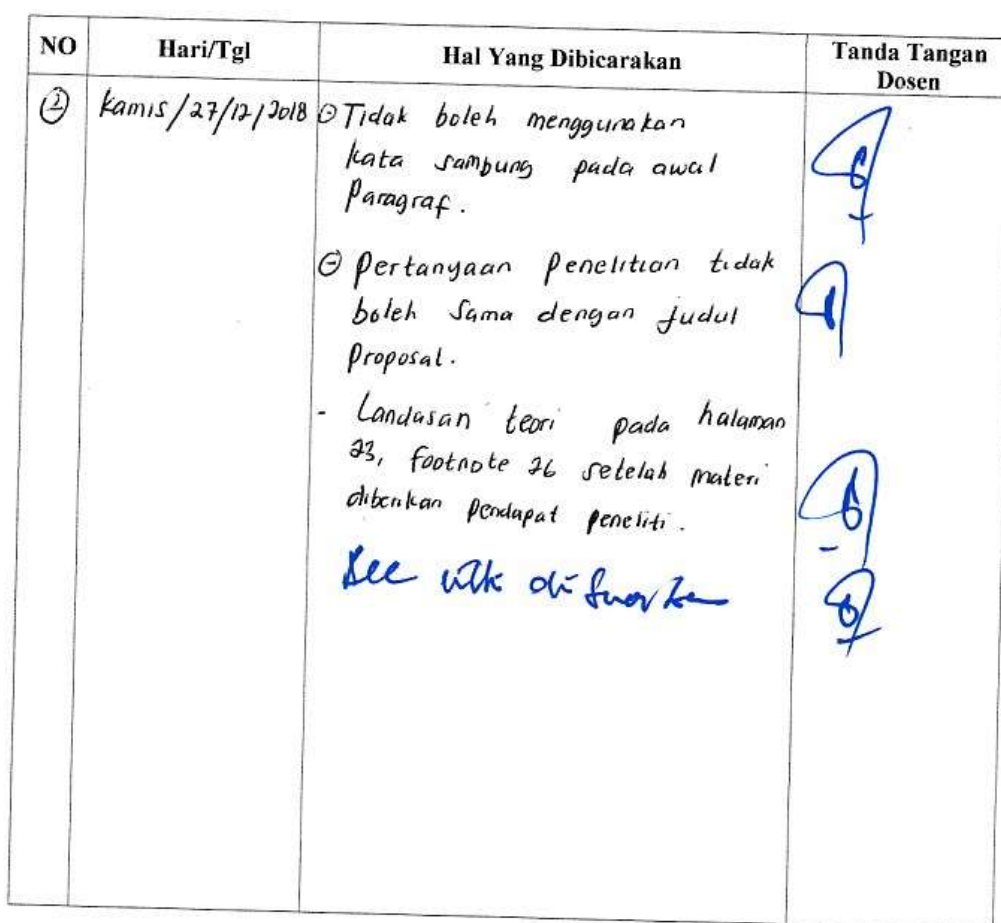 NO Hari/Tgl Hal Yang Dibicarakan Tanda Tangan
Dosen
Kamis/27/12/2018 Tidak boleh menggunakan
kata sambung pada awal
Paragraf.
Pertanyaan Penelitian tidak
boleh Sama dengan judul
Proposal.
- Landasan teori pada halaman
23, footnote 26 setelah materi
diberikan Pendapat peneliti.